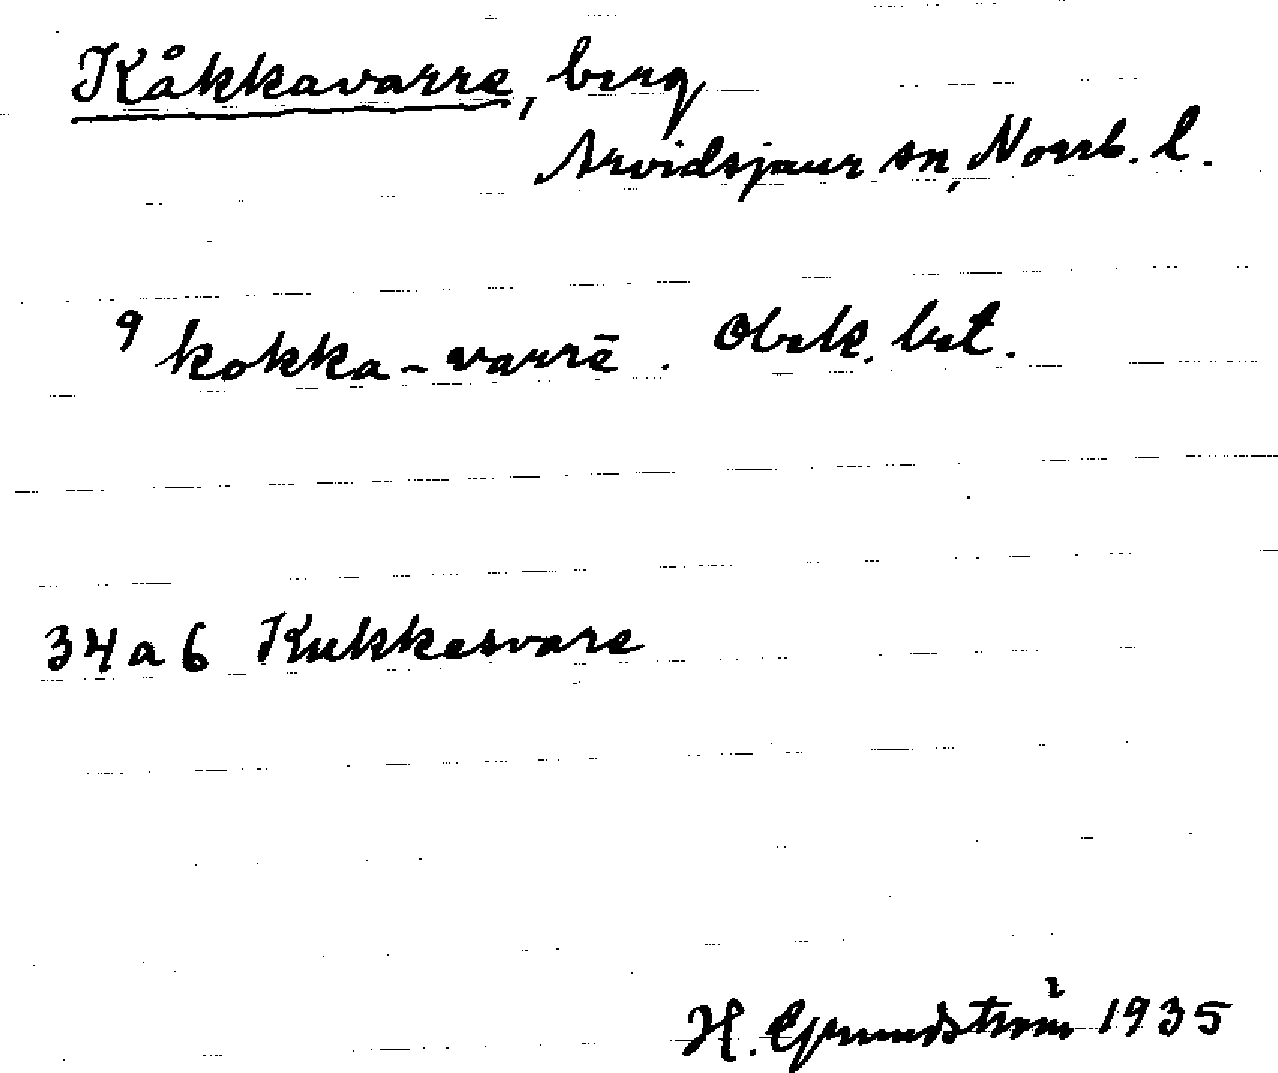 Kåkkavarre, berg
Arvidsjaur sn, Norrb. l.
9 kokka-varrē. Obek. bet.
34 a 6 Kukkesvare
H. Grundström 1935